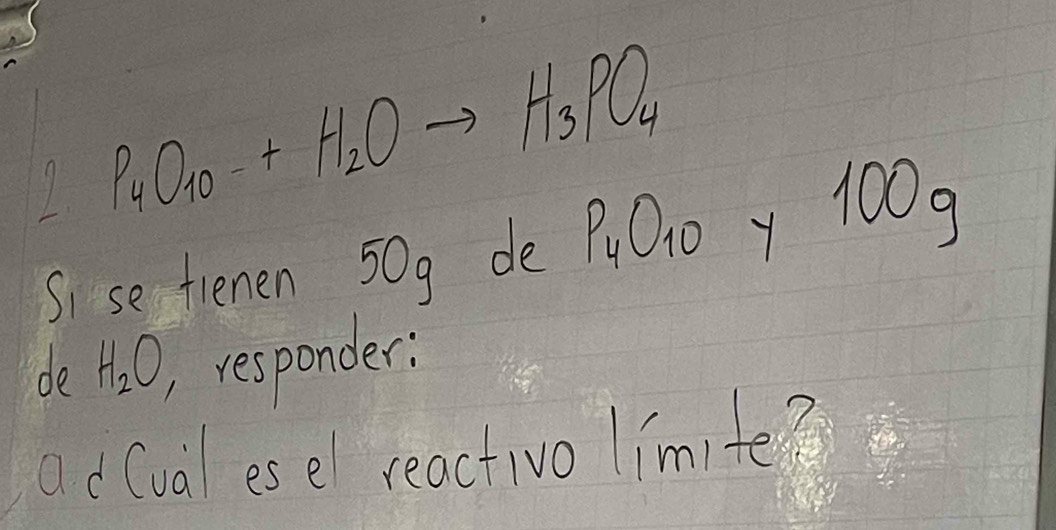 2. P₄O₁₀ + H₂O → H₃PO₄
Si se tienen 50g de P₄O₁₀ y 100g
de H₂O, responder:
a. ¿Cuál es el reactivo límite?